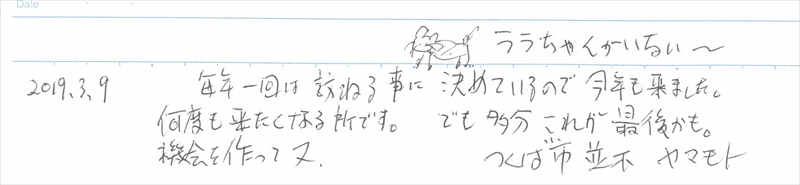 Date
ララちゃんがいない〜
2019.3.9 毎年一回は訪ねる事に決めているので今年も来ました。
何度も来たくなる所です。でも多分これが最後かも。
機会を作って又… つくば市並木 ヤマモト